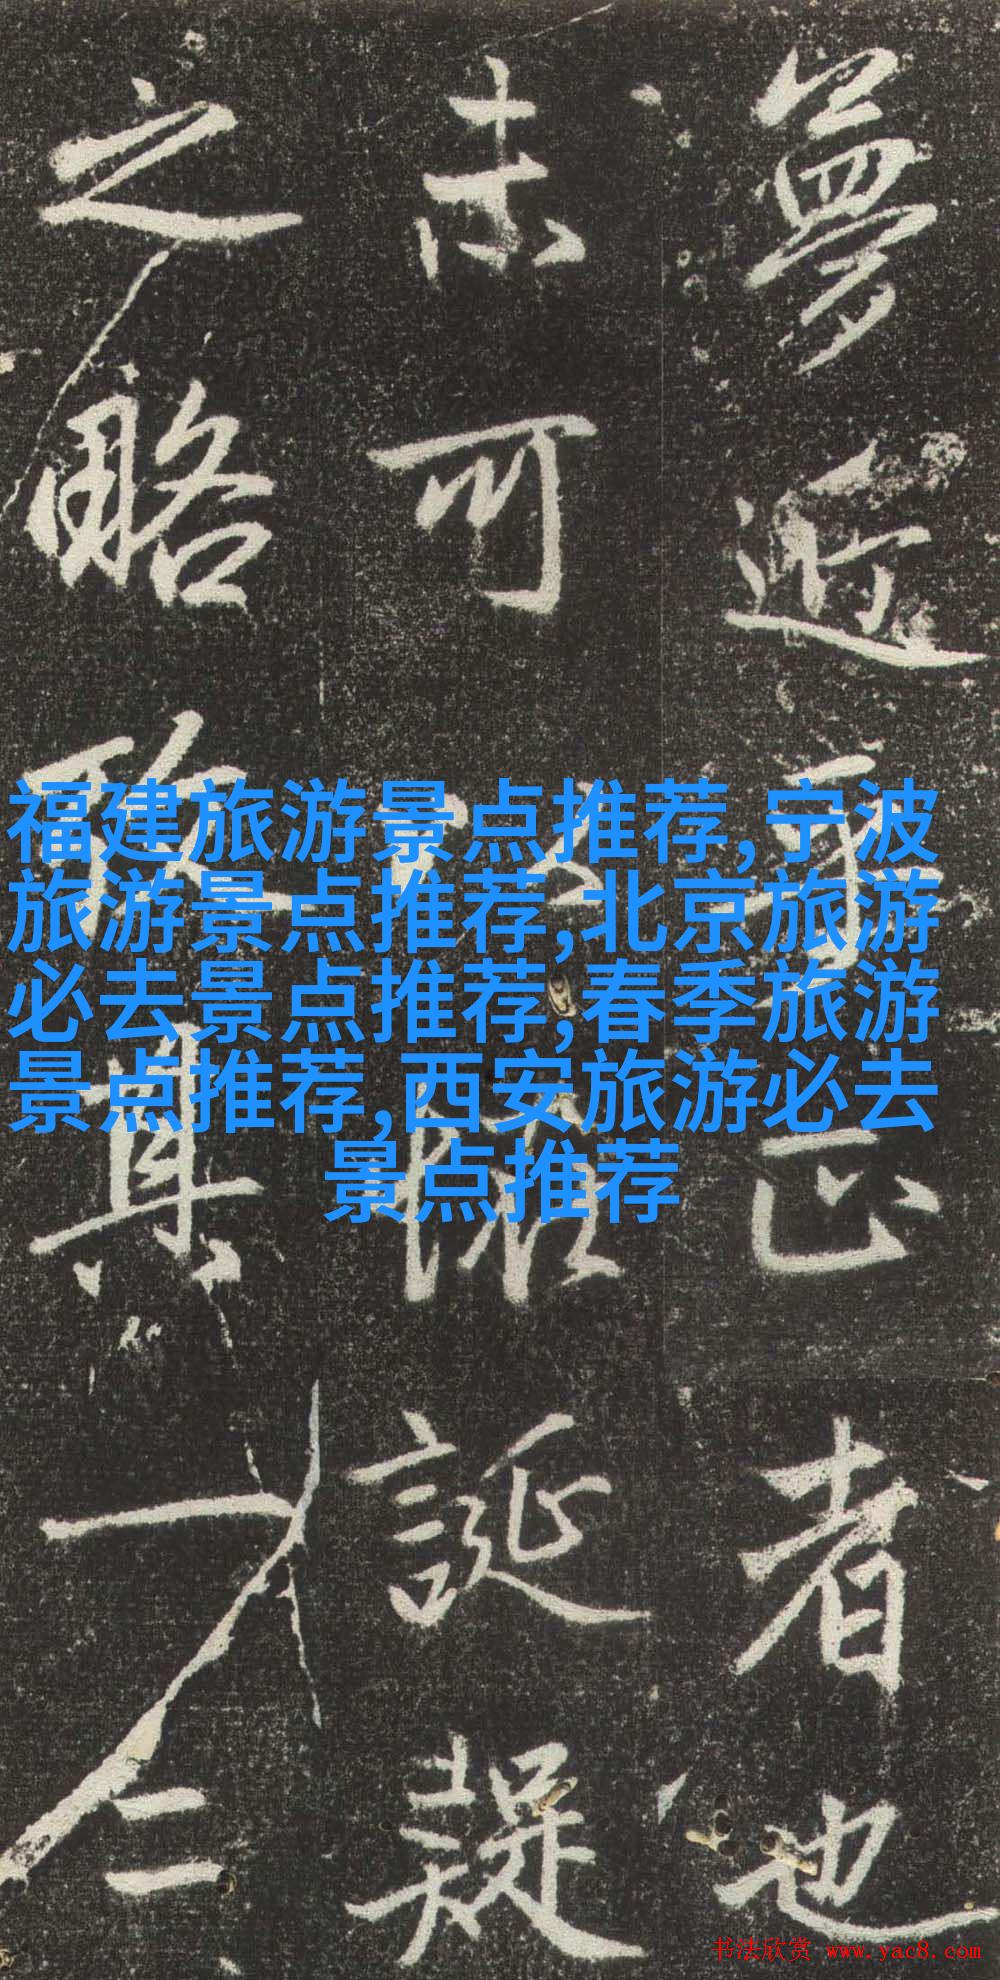 夢近正者也
未可誕疑
之略其一
福建旅游景点推荐,宁波
旅游景点推荐,北京旅游
必去景点推荐,春季旅游
景点推荐,西安旅游必去
景点推荐
书法欣赏 www.yac8.com